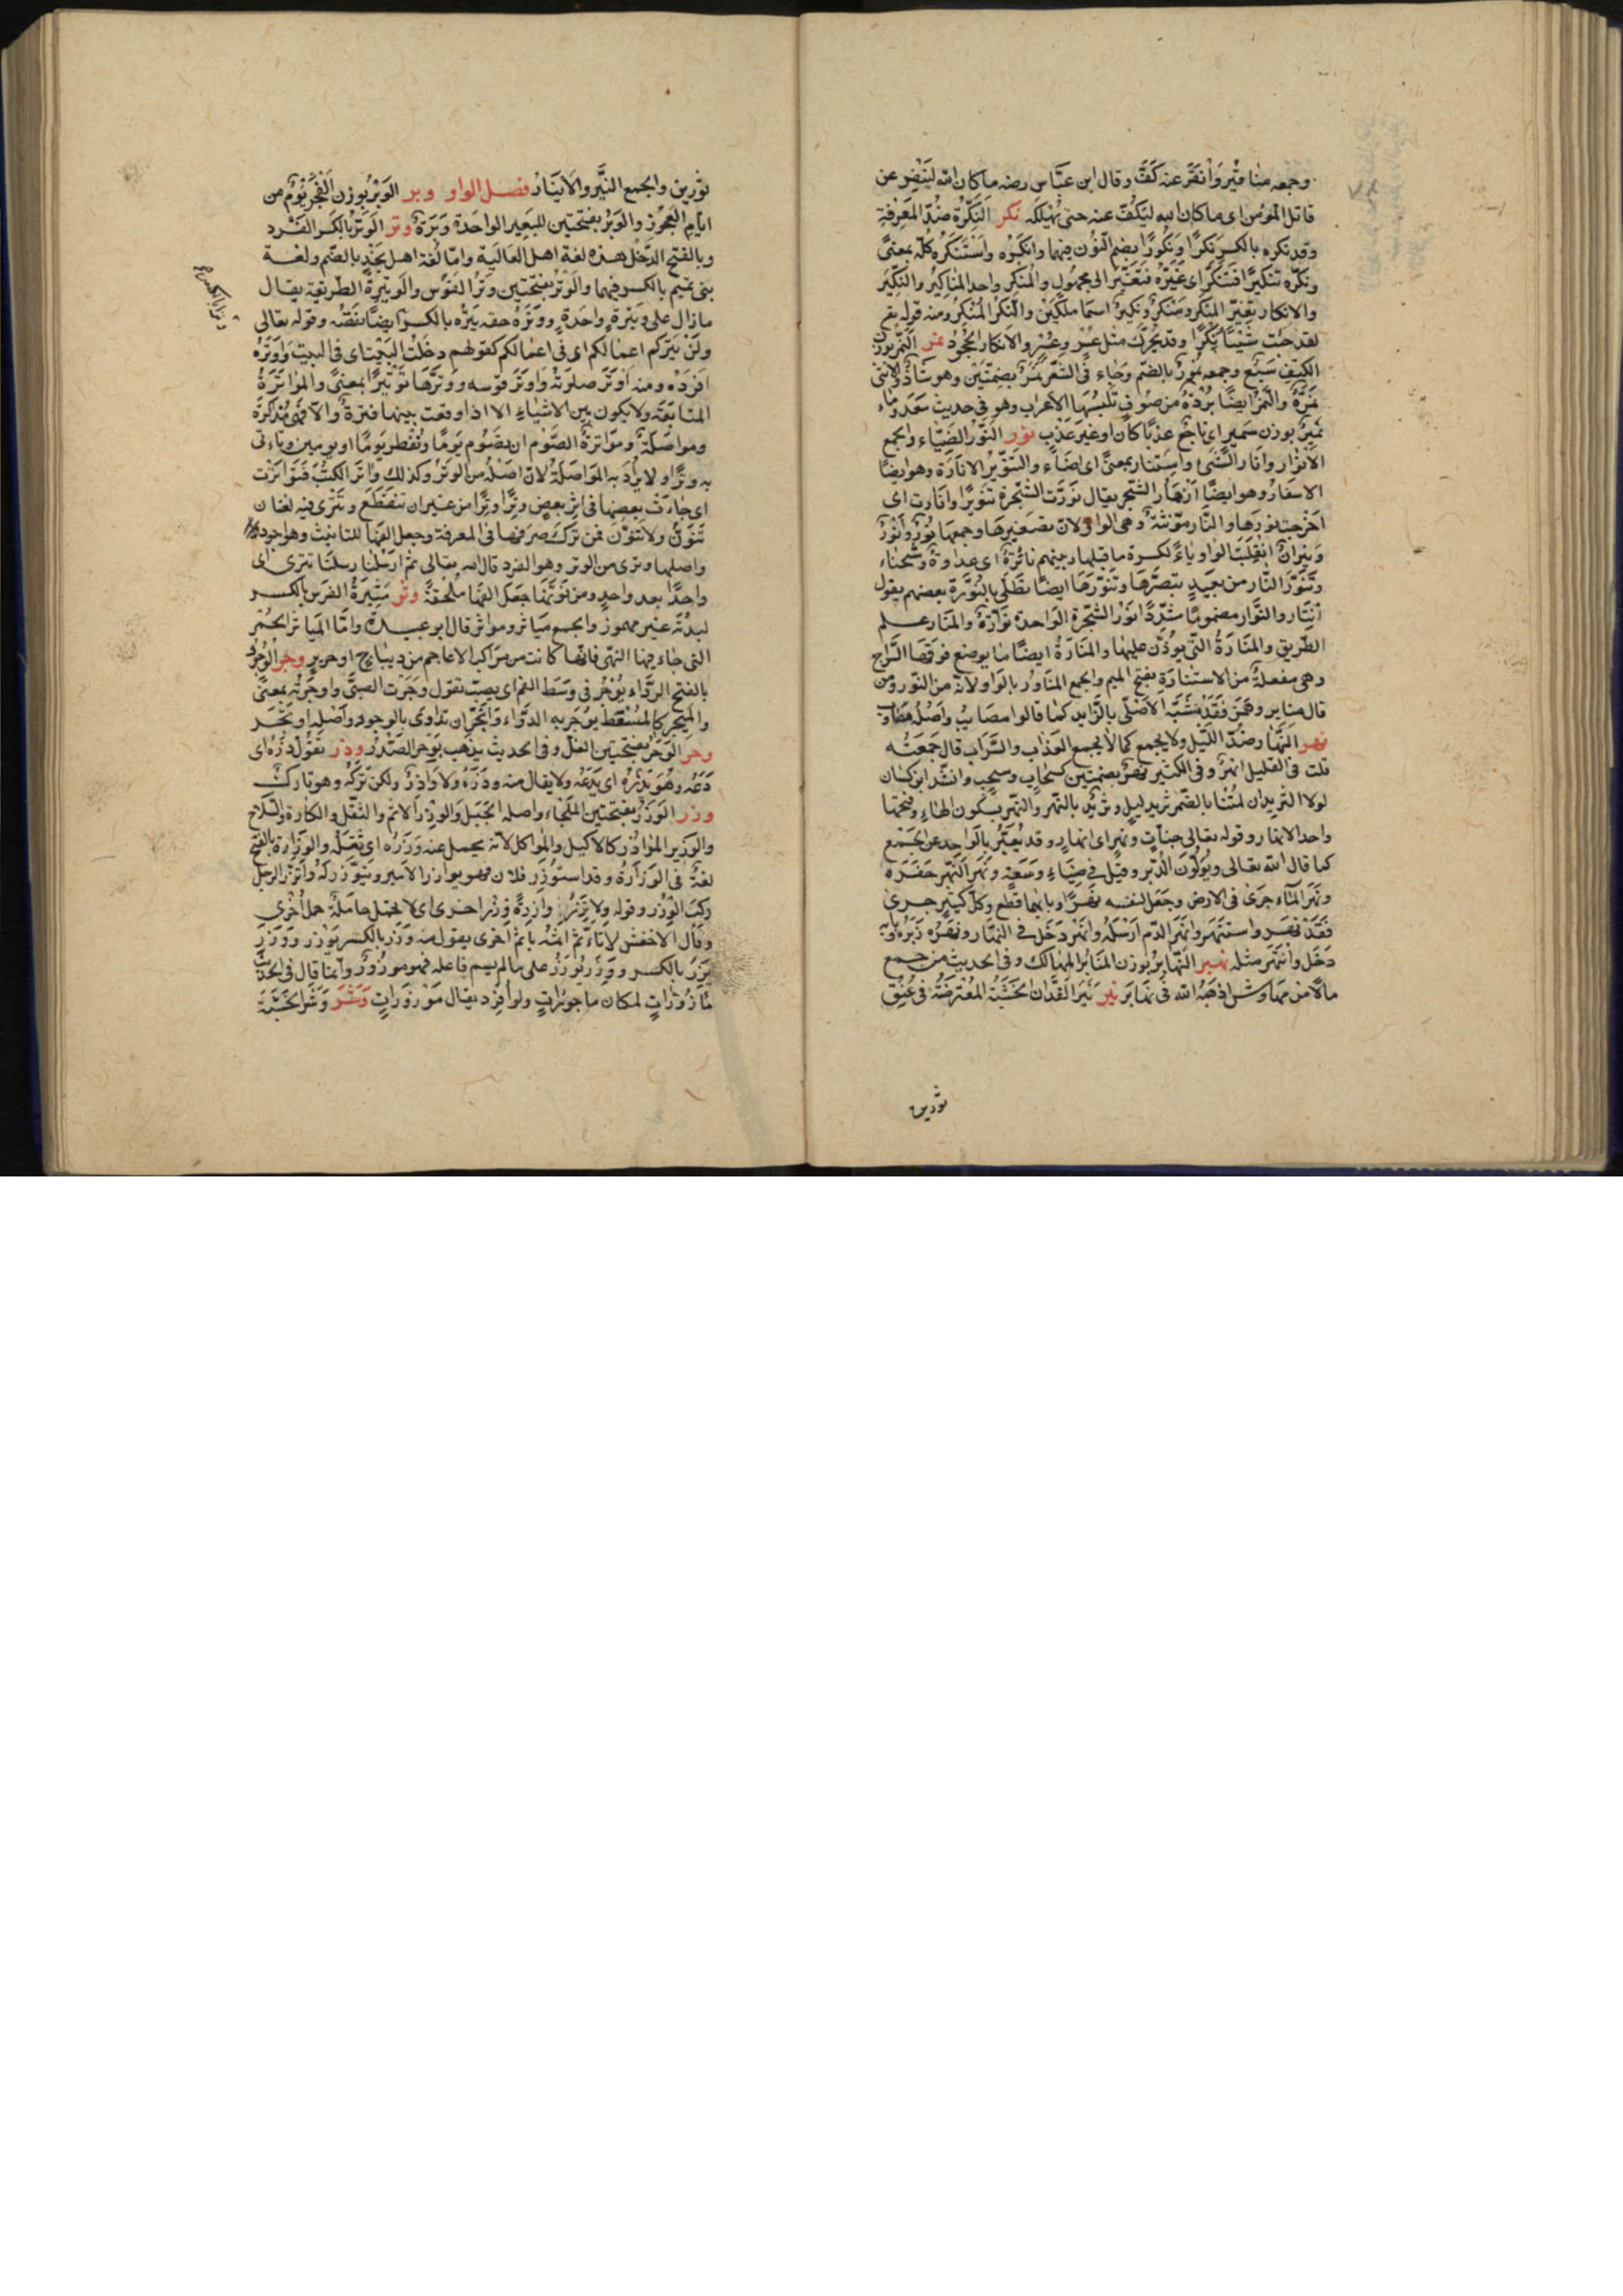 وجمعه مناقير وانقر عنه كفّ وقال ابن عبّاس رضه ما كان الله لينقر عن
قاتل المؤمن اى ما كان الله ليكفّ عنه حتى يهلكه نكر النّكرة ضدّ المعرفة
وقد نكره بالكسر نكرًا ونكورًا بضم النّون فيهما وانكره واستنكره كلّه بمعنى
ونكّره تنكيرًا فتنكّر اى غيّره فتغيّر الى مجهول والمنكر واحد المناكير والنكير
والانكار تغيير المنكر ومنكر ونكير اسما ملكين والنكر المنكر ومنه قوله تع
لقد جئت شيئًا نكرًا وقد يحرّك مثل عسر وعسر والانكار الجحود نمر النّمر بوزن
الكتف سبع وجمعه نمور بالضم وجاء فى الشعر نمر بضمتين وهو شاذّ والانثى
نمرة والنّمرة ايضًا بردة من صوف تلبسها الاعراب وهو فى حديث سعد وماء
نمير بوزن سمير اى ناجع عذبًا كان او غير عذب نور النّور الضّياء والجمع
الانوار وانار الشّئ واستنار بمعنى اى اضاء والتّنوير الانارة وهو ايضًا
الاسفار وهو ايضًا ازهار الشّجر يقال نوّرت الشّجرة تنويرًا وانارت اى
اخرجت نورها والنّار مؤنثة وهى الواو لانّ تصغيرها وجمعها نور وانور
ونيران انقلبت الواو ياءً لكسرة ما قبلها وبينهم نائرة اى عداوة وشحناء
وتنوّر النّار من بعيد تبصّرها وتنوّر ايضًا تطلّى بالنّورة بعضهم يقول
انتار والنّوّار مضمومًا مشدّدًا نور الشّجرة الواحدة نوّارة والمنار علم
الطّريق والمنارة التى يؤذّن عليها والمنارة ايضًا ما يوضع فوقها السّراج
وهى مفعلة من الاستنارة بفتح الميم والجمع المناور بالواو لانّه من النّور ومن
قال مناير وهمز فقد شبّه الاصلى بالزّايد كما قالوا مصايب واصله مصاوب
نهر النّهار ضدّ اللّيل ولا يجمع كما لا يجمع العذاب والسّراب قال جمعته
قلت فى القليل انهر وفى الكثير نهر بضمتين كسحاب وسحب وانشد ابن كيسان
لولا الثريدان لمتنا بالضّمر ثريد ليل وثريد بالنّهر والنّهر بسكون الهاء وفتحها
واحد الانهار وقوله تعالى جنات ونهر اى انهار وقد يعبّر بالواحد عن الجمع
كما قال الله تعالى ويولّون الدّبر وقيل فى ضياء وسعة ونهر النّهر حفره
ونهر الماء جرى فى الارض وجعل لنفسه نهرًا وبابهما قطع وكلّ كثير جرى
فقد نهر واستنهر وانهر الدّم ارسله وانهر دخل فى النّهار ونهره زبره بابه
دخل وانتهر مثله نهبر النّهابر بوزن المنابر المهالك وفى الحديث من جمع
مالًا من مهاوش اذهبه الله فى نهابر نير نير الفدّان الخشبة المعترضة فى عنق
ثورين
ثورين والجمع النّير والانيار فصل الواو وبر الوبر بوزن الفجر يوم من
ايّام العجوز والوبر بفتحتين للبعير الواحدة وبرة وتر الوتر بالكسر الفرد
وبالفتح الدّخل هذه لغة اهل العالية وامّا لغة اهل نجد بالضّم ولغة
بنى تميم بالكسر فيهما والوتر بفتحتين وتر القوس والوتيرة الطّريقة يقال
ما زال على وتيرة واحدة ووتره حقه يتره بالكسر ايضًا نقصه وقوله تعالى
ولن يتركم اعمالكم اى فى اعمالكم كقولهم دخلت البيت اى فى البيت واوتره
افرده ومنه اوتر صلوته واوتر قوسه ووتّرها توتيرًا بمعنى والمواترة
المتابعة ولا يكون بين الاشياء الا اذا وقعت بينهما فترة والّا فهى مداركة
ومواصلة ومواترة الصّوم ان تصوم يومًا وتفطر يومًا او يومين وتاءتى
به وترًا ولا يراد به المواصلة لانّ اصله من الوتر وكذلك واتر الكتب فتواترت
اى جاءت بعضها فى اثر بعض وترًا وترًا من غير ان تنقطع وتترى فيه لغتان
تنوّن ولا تنوّن فمن ترك صرفها فى المعرفة وجعل الفها للتانيث وهو اجود
واصلها وترى من الوتر وهو الفرد قال الله تعالى ثم ارسلنا رسلنا تترى اى
واحدًا بعد واحد ومن نوّنها جعل الفها ملحقة وثر ميثرة الفرس بالكسر
لبدته غير مهموز والجمع مياثر ومواثر قال ابو عبيدة وامّا المياثر الحمر
التى جاء فيها النهى فانّها كانت من مراكب الاعاجم من ديباج او حرير وجر الوجور
بالفتح الدّواء يوجر فى وسط الفم اى يصبّ تقول وجرت الصبىّ واوجرته بمعنى
والميجر كالمسقط يوجر به الدّواء واتّجر ان تداوى بالوجور واصله اوتجر
وحر الوحر بفتحتين الغلّ وفى الحديث يذهب بوحر الصّدر وذر تقول ذره اى
دعه وهو يذره اى يدعه ولا يقال منه وذره ولا واذر ولكن تركه وهو تارك
وزر الوزر بفتحتين الملجاء واصله الجبل والوزر الاثم والثّقل والكارة والسّلاح
والوزير الموازر كالاكيل والمواكل لانّه يحمل عنه وزره اى ثقله والوزارة بالفتح
لغة فى الوزارة وقد استوزر فلان فهو يوازر الامير ويتوزّر له واتّزر الرجل
ركب الوزر وقوله ولا تزر وازرة وزر اخرى اى لا تحمل حاملة حمل اخرى
وقال الاخفش لا تاءثم اثمة باثم اخرى يقول منه وزر بالكسر يوزر ووزر
يزر بالكسر ووزر يوزر على ما لم يسم فاعله فهو موزور وانّما قال فى الحديث
مأزورات لمكان ماجورات ولو افرد يقال موزورات وشر وشر الخشبة